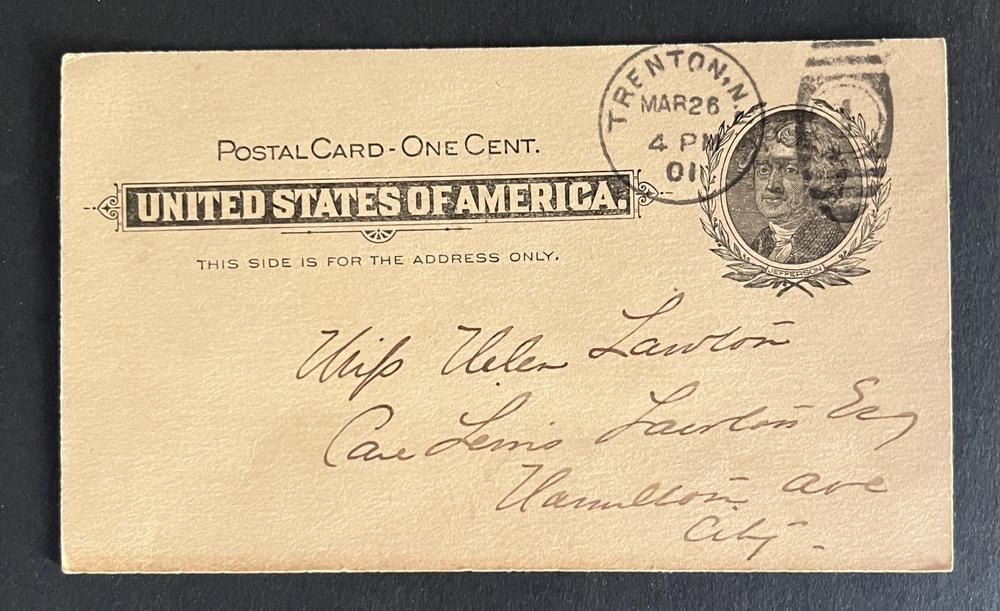 TRENTON, N.
MAR 26
4 PM
01
1
POSTAL CARD - ONE CENT.
UNITED STATES OF AMERICA.
THIS SIDE IS FOR THE ADDRESS ONLY.
JEFFERSON
Miss Helen Lawton
Care Lewis Lawton Esq
Hamilton Ave
City.